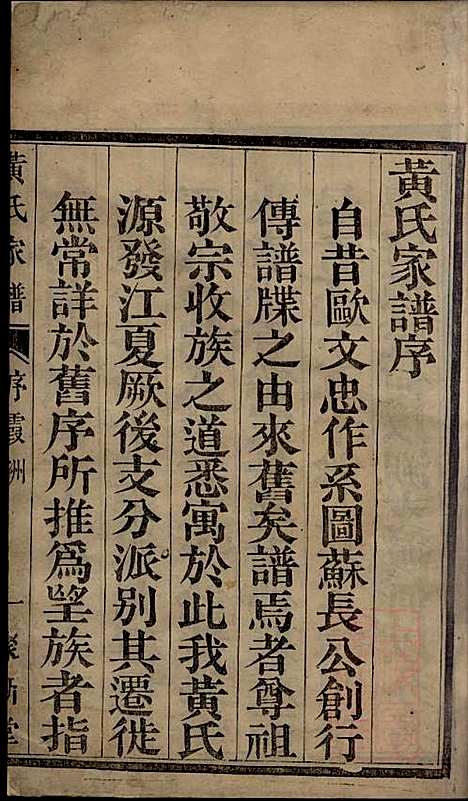 黃氏家譜序
自昔歐文忠作系圖蘇長公創行
傳譜牒之由來舊矣譜焉者尊祖
敬宗收族之道悉寓於此我黃氏
源發江夏厥後支分派別其遷徙
無常詳於舊序所推為望族者指
黃氏家譜 序 霞洲 一 堂